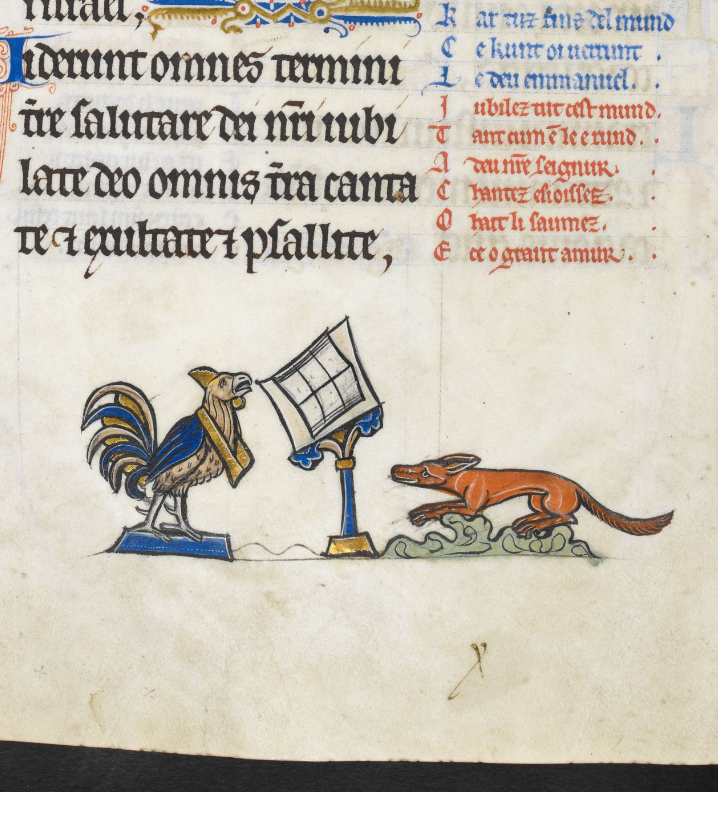 israel,
Uiderunt omnes termini
t̄re salutare dei nr̄i iubi
late deo omnis t̄ra canta
te ⁊ exultate ⁊ psallite,
K ar tuz fins del mund
C e kunt oi uerunt
L e deu emmanuel.
I ubilez tut cest mund.
T ant cum ē le erund.
A deu nr̄e seignur.
C hantez esioissez.
O hatt li saumez.
E ce o graitt amur.